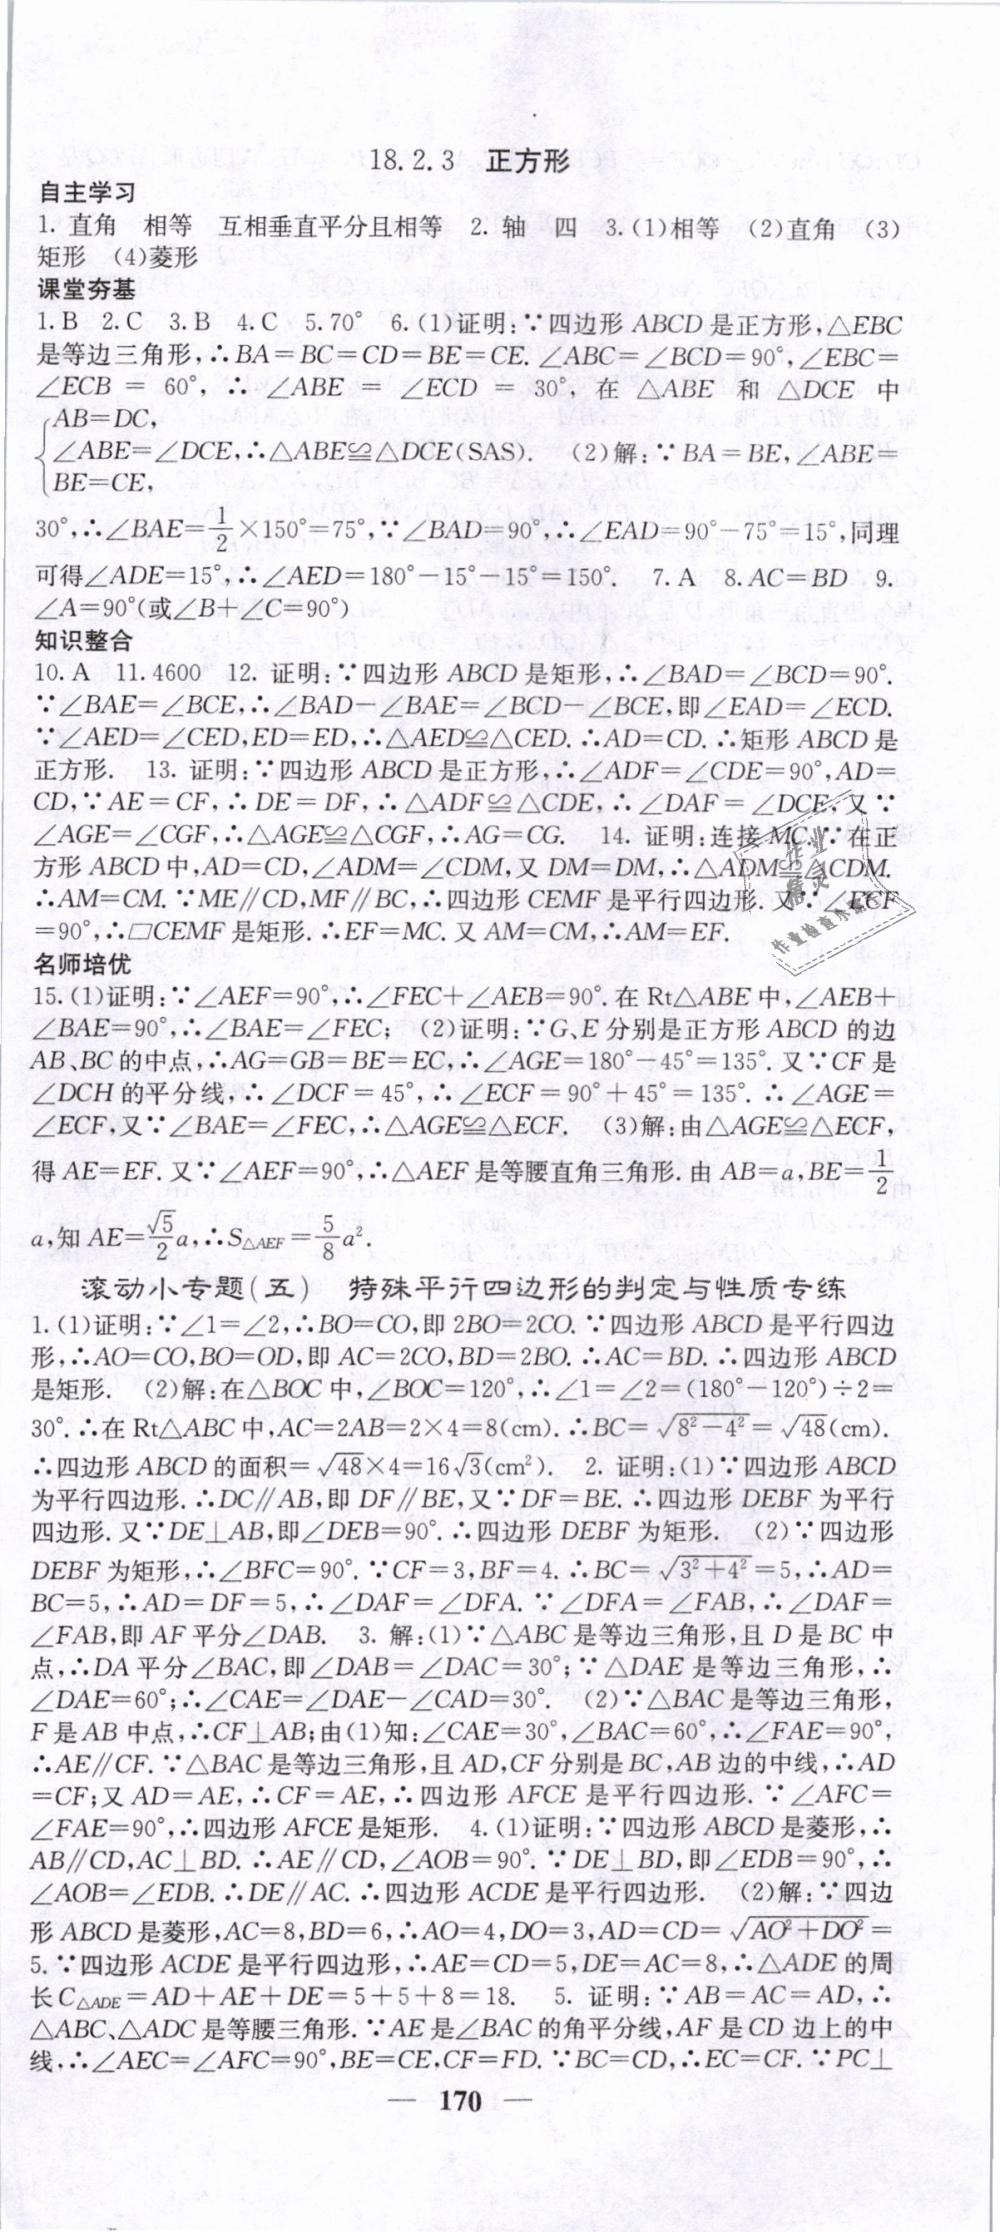 18.2.3 正方形
自主学习
1. 直角 相等 互相垂直平分且相等 2. 轴 四 3.(1)相等 (2)直角 (3)
矩形 (4)菱形
课堂夯基
1.B 2.C 3.B 4.C 5.70° 6.(1)证明:∵四边形 ABCD 是正方形,△EBC
是等边三角形,∴BA=BC=CD=BE=CE.∠ABC=∠BCD=90°,∠EBC=
∠ECB = 60°, ∴ ∠ABE = ∠ECD = 30°, 在 △ABE 和 △DCE 中
AB=DC,
∠ABE=∠DCE,∴△ABE≌△DCE(SAS). (2)解:∵BA=BE,∠ABE=
BE=CE,
30°,∴∠BAE=1/2×150°=75°,∵∠BAD=90°,∴∠EAD=90°-75°=15°,同理
可得∠ADE=15°,∴∠AED=180°-15°-15°=150°. 7.A 8.AC=BD 9.
∠A=90°(或∠B+∠C=90°)
知识整合
10.A 11.4600 12. 证明:∵四边形 ABCD 是矩形,∴∠BAD=∠BCD=90°.
∵∠BAE=∠BCE,∴∠BAD-∠BAE=∠BCD-∠BCE,即∠EAD=∠ECD.
∵∠AED=∠CED,ED=ED,∴△AED≌△CED.∴AD=CD.∴矩形 ABCD 是
正方形. 13. 证明:∵四边形 ABCD 是正方形,∴∠ADF=∠CDE=90°,AD=
CD,∵AE=CF,∴DE=DF,∴△ADF≌△CDE,∴∠DAF=∠DCE,又∵
∠AGE=∠CGF,∴△AGE≌△CGF,∴AG=CG. 14. 证明:连接 MC.∵在正
方形 ABCD 中,AD=CD,∠ADM=∠CDM,又 DM=DM,∴△ADM≌△CDM.
∴AM=CM.∵ME∥CD,MF∥BC,∴四边形 CEMF 是平行四边形.又∵∠ECF
=90°,∴▱CEMF 是矩形.∴EF=MC.又 AM=CM,∴AM=EF.
名师培优
15.(1)证明:∵∠AEF=90°,∴∠FEC+∠AEB=90°.在 Rt△ABE 中,∠AEB+
∠BAE=90°,∴∠BAE=∠FEC; (2)证明:∵G、E 分别是正方形 ABCD 的边
AB、BC 的中点,∴AG=GB=BE=EC,∴∠AGE=180°-45°=135°.又∵CF 是
∠DCH 的平分线,∴∠DCF=45°,∴∠ECF=90°+45°=135°.∴∠AGE=
∠ECF,又∵∠BAE=∠FEC,∴△AGE≌△ECF. (3)解:由△AGE≌△ECF,
得 AE=EF.又∵∠AEF=90°,∴△AEF 是等腰直角三角形.由 AB=a,BE=1/2
a,知 AE=√5/2a,∴S△AEF=5/8a².
滚动小专题(五) 特殊平行四边形的判定与性质专练
1.(1)证明:∵∠1=∠2,∴BO=CO,即 2BO=2CO.∵四边形 ABCD 是平行四边
形,∴AO=CO,BO=OD,即 AC=2CO,BD=2BO.∴AC=BD.∴四边形 ABCD
是矩形. (2)解:在△BOC 中,∠BOC=120°,∴∠1=∠2=(180°-120°)÷2=
30°.∴在 Rt△ABC 中,AC=2AB=2×4=8(cm).∴BC=√(8²-4²)=√48(cm).
∴四边形 ABCD 的面积=√48×4=16√3(cm²). 2. 证明:(1)∵四边形 ABCD
为平行四边形.∴DC∥AB,即 DF∥BE,又∵DF=BE.∴四边形 DEBF 为平行
四边形.又∵DE⊥AB,即∠DEB=90°.∴四边形 DEBF 为矩形. (2)∵四边形
DEBF 为矩形,∴∠BFC=90°.∵CF=3,BF=4.∴BC=√(3²+4²)=5,∴AD=
BC=5,∴AD=DF=5,∴∠DAF=∠DFA.∵∠DFA=∠FAB,∴∠DAF=
∠FAB,即 AF 平分∠DAB. 3. 解:(1)∵△ABC 是等边三角形,且 D 是 BC 中
点,∴DA 平分∠BAC,即∠DAB=∠DAC=30°;∵△DAE 是等边三角形,∴
∠DAE=60°;∴∠CAE=∠DAE-∠CAD=30°. (2)∵△BAC 是等边三角形,
F 是 AB 中点,∴CF⊥AB;由(1)知:∠CAE=30°,∠BAC=60°,∴∠FAE=90°,
∴AE∥CF.∵△BAC 是等边三角形,且 AD,CF 分别是 BC,AB 边的中线,∴AD
=CF;又 AD=AE,∴CF=AE,∴四边形 AFCE 是平行四边形.∵∠AFC=
∠FAE=90°,∴四边形 AFCE 是矩形. 4.(1)证明:∵四边形 ABCD 是菱形,∴
AB∥CD,AC⊥BD.∴AE∥CD,∠AOB=90°.∵DE⊥BD,即∠EDB=90°,∴
∠AOB=∠EDB.∴DE∥AC.∴四边形 ACDE 是平行四边形. (2)解:∵四边
形 ABCD 是菱形,AC=8,BD=6,∴AO=4,DO=3,AD=CD=√(AO²+DO²)=
5.∵四边形 ACDE 是平行四边形,∴AE=CD=5,DE=AC=8,∴△ADE 的周
长 C△ADE=AD+AE+DE=5+5+8=18. 5. 证明:∵AB=AC=AD,∴
△ABC、△ADC 是等腰三角形.∵AE 是∠BAC 的角平分线,AF 是 CD 边上的中
线,∴∠AEC=∠AFC=90°,BE=CE,CF=FD.∵BC=CD,∴EC=CF.∵PC⊥
— 170 —
作业
精灵